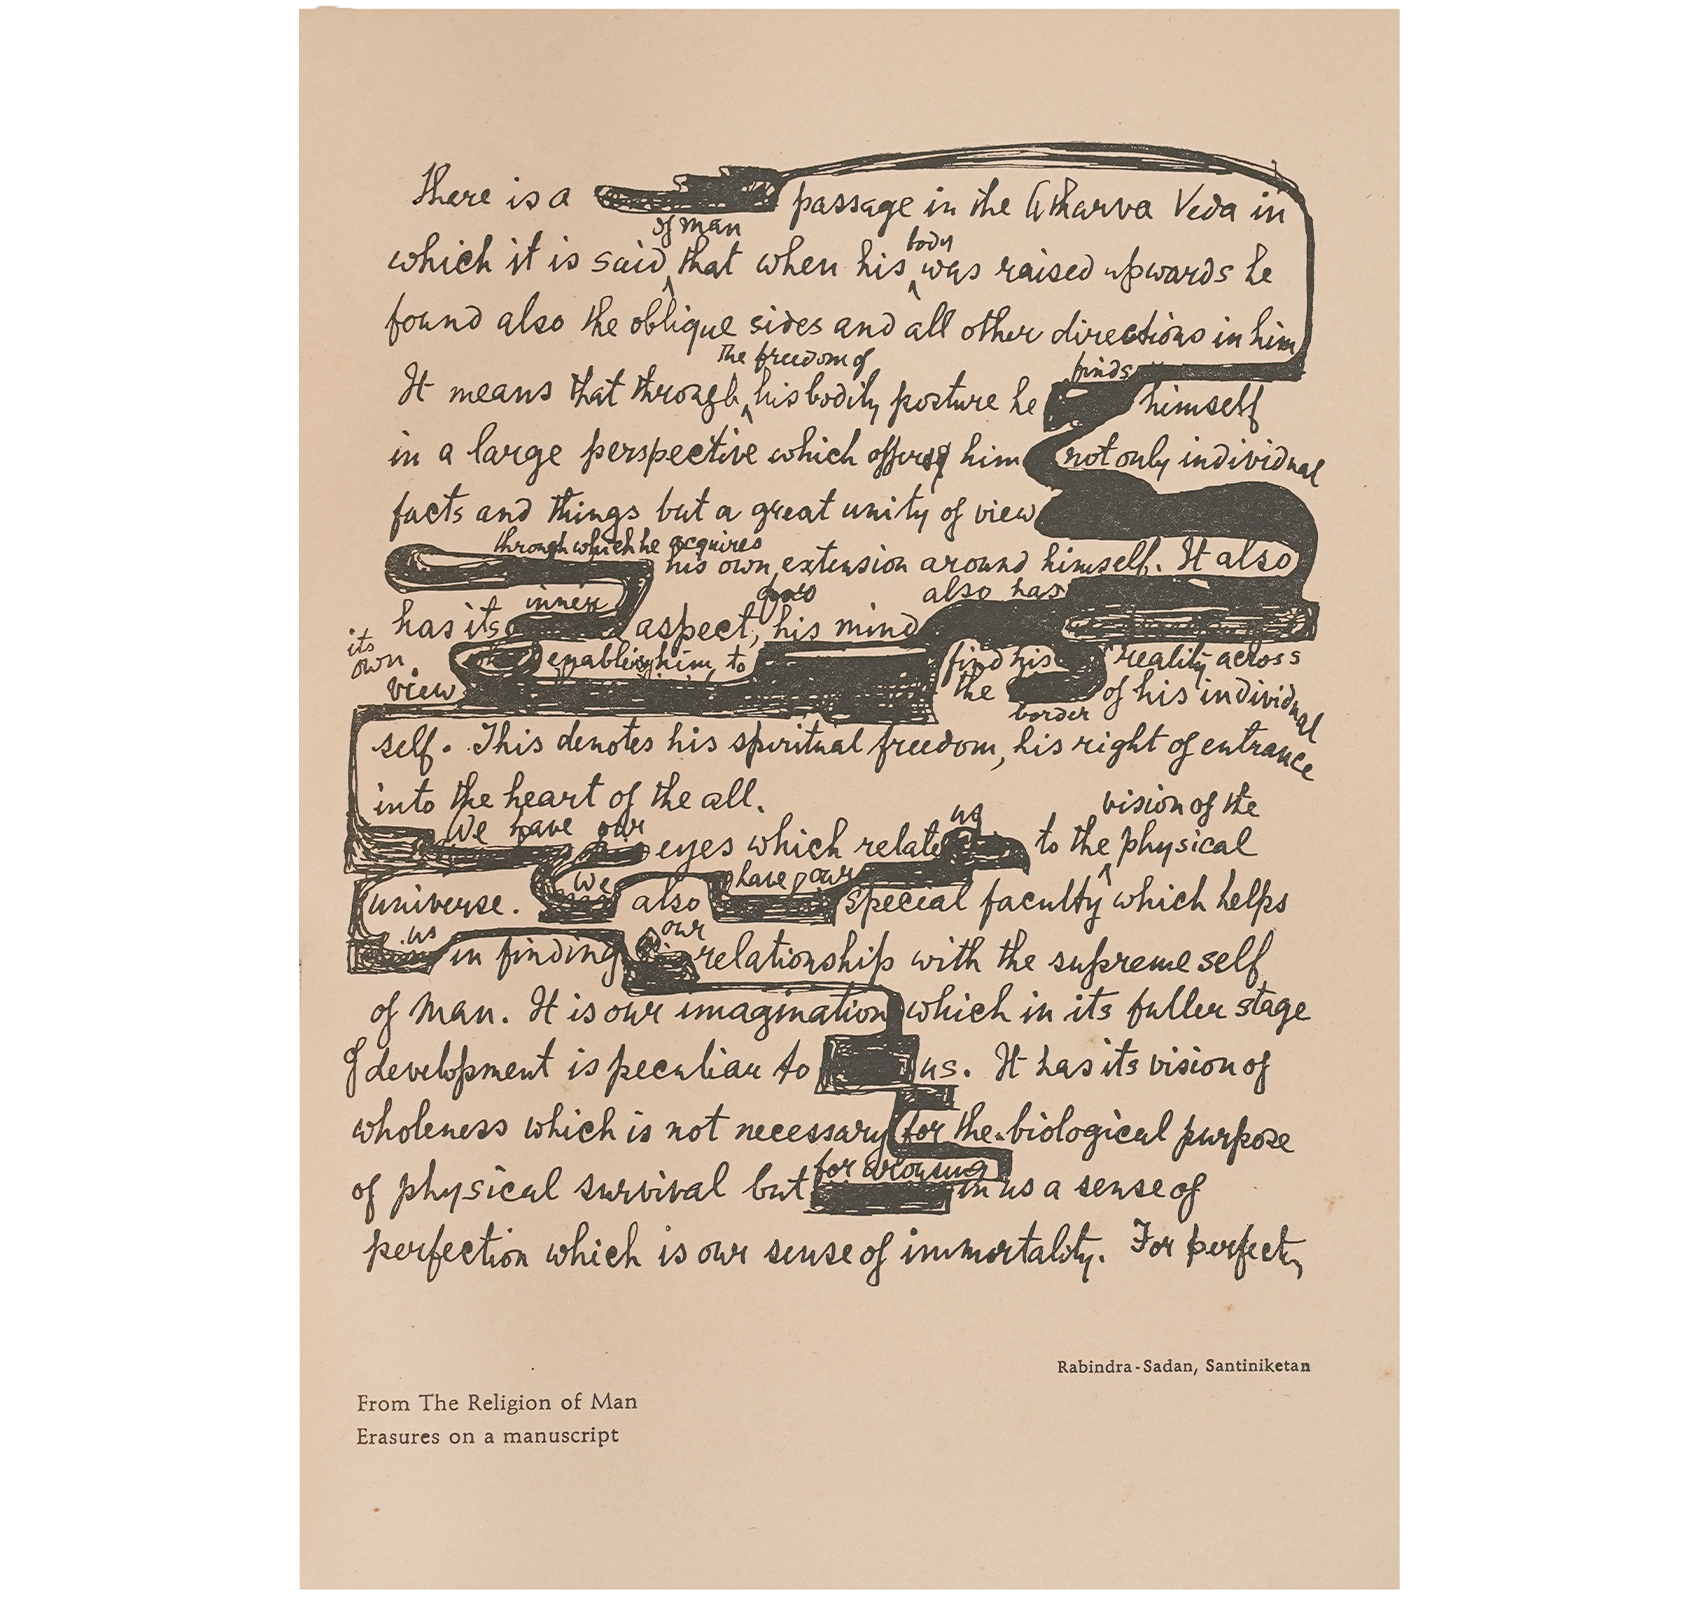 There is a passage in the Atharva Veda in
of man
body
which it is said that when his was raised upwards he
found also the oblique sides and all other directions in him
the freedom of
finds
It means that through his bodily posture he himself
in a large perspective which him not only individual
facts and things but a great unity of view
through which he acquires
his own extension around himself. It also
inner
also has
has its aspect, his mind
its
own
enabling him to find his reality across
view the of his individual
border
self. This denotes his spiritual freedom, his right of entrance
into the heart of the all.
We have our
us
vision of the
eyes which relate to the physical
we
have our
universe. also special faculty which helps
us
our
in finding relationship with the supreme self
of Man. It is our imagination which in its fuller stage
of development is peculiar to us. It has its vision of
wholeness which is not necessary for the biological purpose
for arousing
of physical survival but in us a sense of
perfection which is our sense of immortality. For perfect,
Rabindra-Sadan, Santiniketan
From The Religion of Man
Erasures on a manuscript